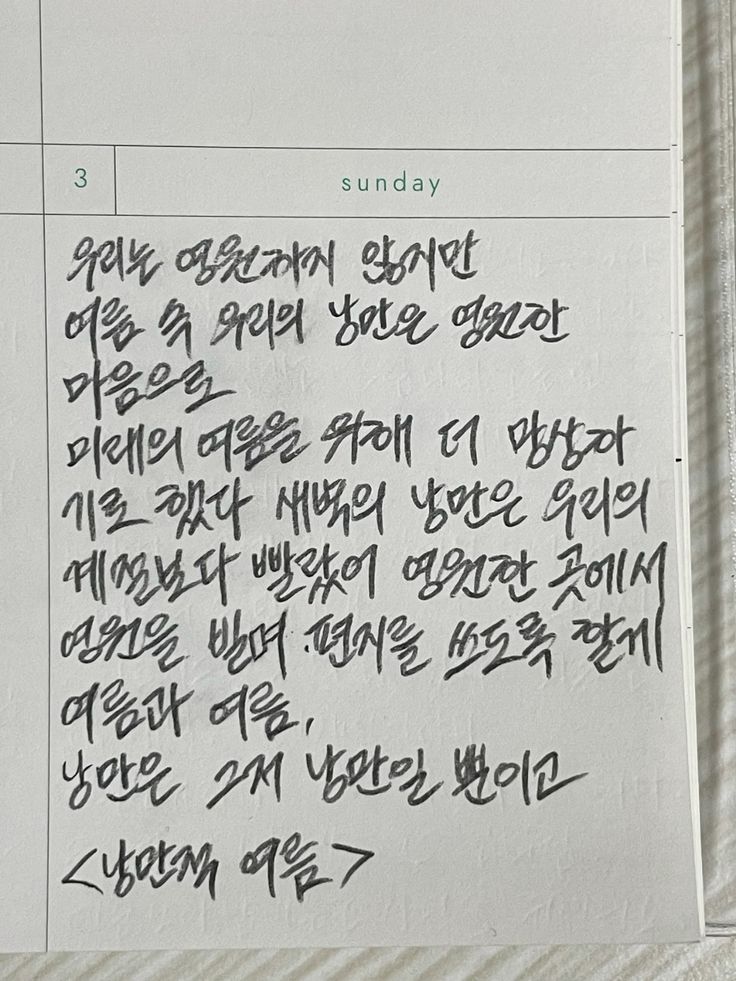 3 sunday
우리는 영원하지 않지만
여름 속 우리의 낭만은 영원한
마음으로
미래의 여름을 위해 더 망상하
기로 했다 새벽의 낭만은 우리의
계절보다 빨랐어 영원한 곳에서
영원을 빌며 편지를 쓰도록 할게
여름과 여름,
낭만은 그저 낭만일 뿐이고
<낭만적 여름>